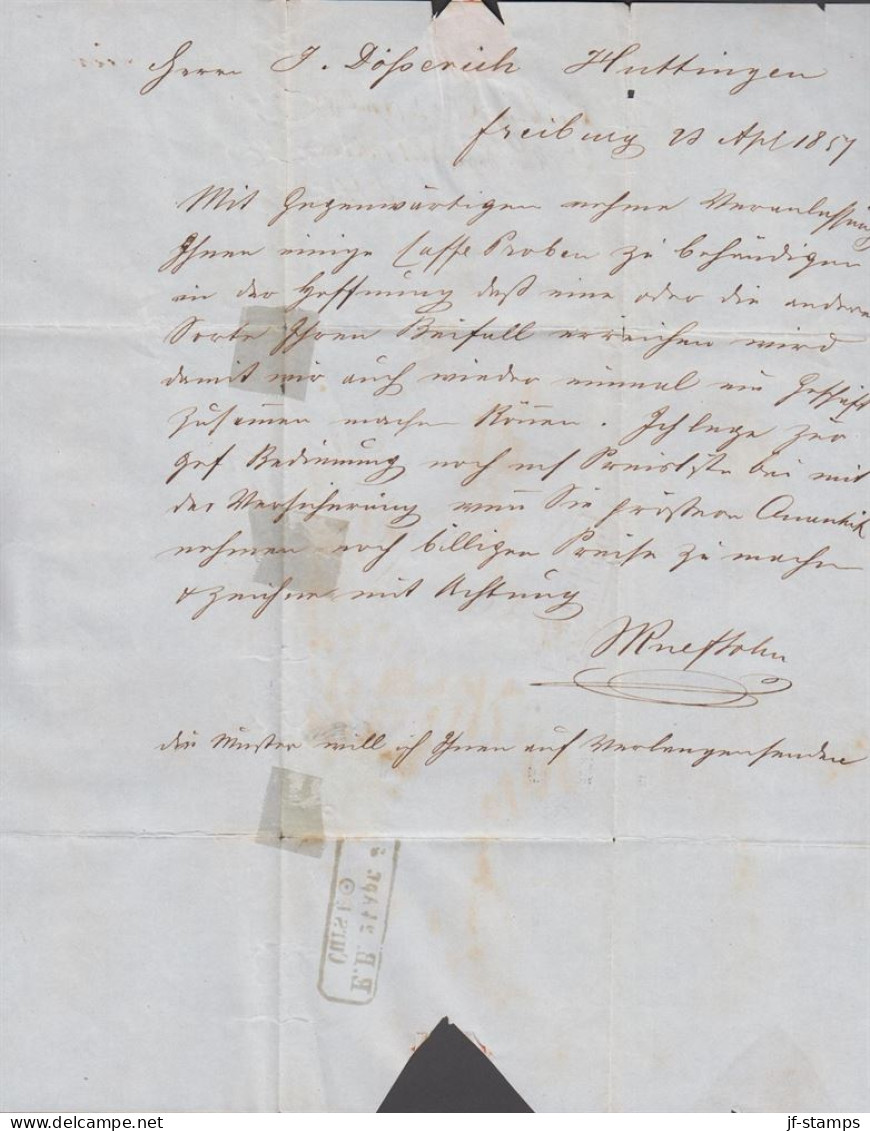 Herrn J. Dösserich Huttingen
Freiburg 23 Apl 1857
Mit Gegenwärtigen nehme Veranlassung
Ihnen einige Caffe Proben zu behändigen
in der Hoffnung daß eine oder die andere
Sorte Ihren Beifall erreichen wird
damit wir auch wieder einmal ein Geschäft
zusammen machen können. Ich lege zur
gef Bedienung noch Preisliste bei mit
der Versicherung wenn Sie größere Quantität
nehmen noch billigere Preise zu machen
& zeichne mit Achtung
die Muster will ich Ihnen auf Verlangen senden
Curs
E.B.
jf-stamps